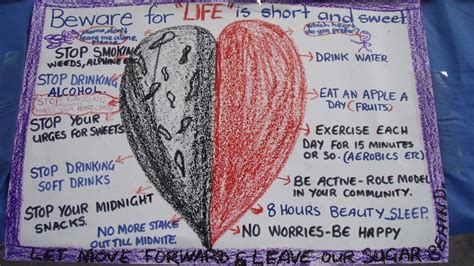 Beware for "LIFE" is short and sweet
Mama, don't
leave me alone,
please
Which heart
do you prefer?
STOP SMOKING
WEEDS,
STOP DRINKING
ALCOHOL
STOP NAGGING
STOP YOUR
URGES FOR SWEETS
STOP DRINKING
SOFT DRINKS
STOP YOUR MIDNIGHT
SNACKS.
NO MORE STAKE
OUT TILL MIDNITE
DRINK WATER
EAT AN APPLE A
DAY (FRUITS)
EXERCISE EACH
DAY FOR 15 MINUTES
OR SO. (AEROBICS ETC)
BE ACTIVE-ROLE MODEL
IN YOUR COMMUNITY.
8 HOURS BEAUTY SLEEP.
NO WORRIES-BE HAPPY
LET MOVE FORWARD & LEAVE OUR SUGAR BEHIND